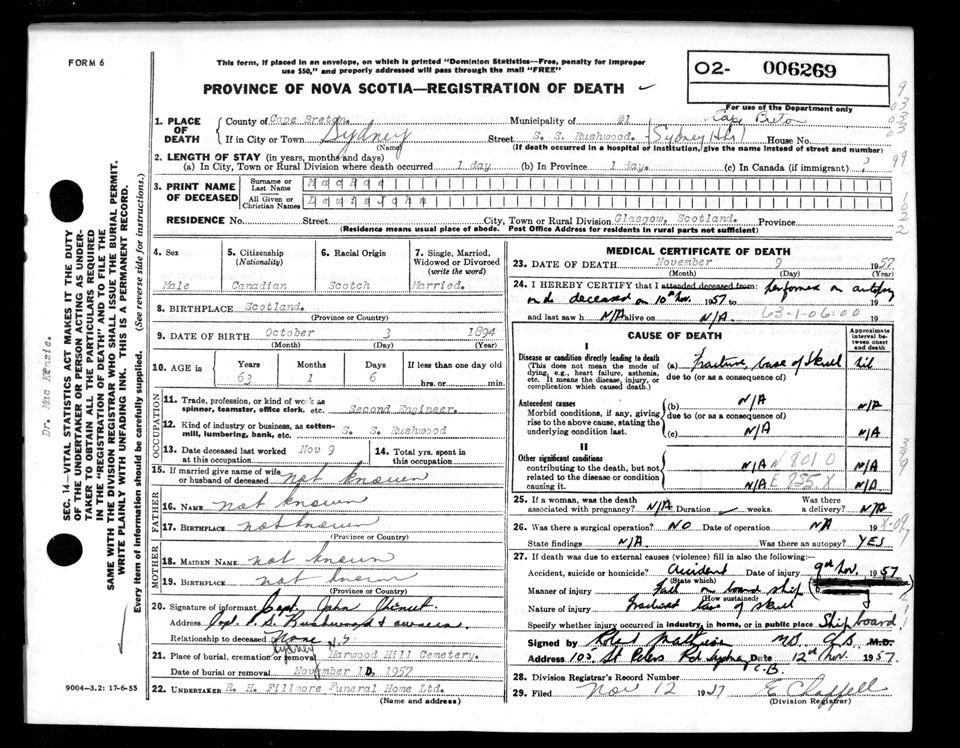 FORM 6
This form, if placed in an envelope, on which is printed "Dominion Statistics—Free, penalty for improper
use $50," and properly addressed will pass through the mail "FREE"
O2- 006269
PROVINCE OF NOVA SCOTIA—REGISTRATION OF DEATH
For use of the Department only
1. PLACE OF DEATH
County of Cape Breton. Municipality of #1 Cape Breton
If in City or Town Sydney (Name) Street S. S. Rushwood. House No.
(If death occurred in a hospital or institution, give the name instead of street and number)
2. LENGTH OF STAY (in years, months and days)
(a) In City, Town or Rural Division where death occurred 1 day (b) In Province 1 day. (c) In Canada (if immigrant)
3. PRINT NAME OF DECEASED
Surname or Last Name
All Given or Christian Names
RESIDENCE No. Street City, Town or Rural Division Glasgow, Scotland. Province
(Residence means usual place of abode. Post Office Address for residents in rural parts not sufficient)
4. Sex
Male
5. Citizenship
(Nationality)
Canadian
6. Racial Origin
Scotch
7. Single, Married,
Widowed or Divorced
(write the word)
Married.
8. BIRTHPLACE Scotland.
(Province or Country)
9. DATE OF BIRTH October 3 1894
(Month) (Day) (Year)
10. AGE in
Years Months Days If less than one day old
63 1 6 hrs. or min.
OCCUPATION
11. Trade, profession, or kind of work as
spinner, teamster, office clerk, etc. Second Engineer.
12. Kind of industry or business, as cotton-
mill, lumbering, bank, etc. S. S. Rushwood
13. Date deceased last worked
at this occupation Nov 9
14. Total yrs. spent in
this occupation
15. If married give name of wife
or husband of deceased not known
FATHER
16. NAME not known
17. BIRTHPLACE not known
(Province or Country)
MOTHER
18. MAIDEN NAME not known
19. BIRTHPLACE not known
(Province or Country)
20. Signature of informant Capt. John
Address Capt. S.S. Rushwood & owners.
Relationship to deceased None
21. Place of burial, cremation or removal Sydney N.S. Harwood Hill Cemetery.
Date of burial or removal November 12, 1957
22. UNDERTAKER R. H. Fillmore Funeral Home Ltd.
(Name and address)
9004—3.2: 17-6-55
MEDICAL CERTIFICATE OF DEATH
23. DATE OF DEATH November 9 1957
(Month) (Day) (Year)
24. I HEREBY CERTIFY that I attended deceased from: performed an autopsy
on the deceased on 10th Nov. 1957 to 19
and last saw h N/A alive on N/A. 19
63-1-06:00
CAUSE OF DEATH
Approximate
interval be-
tween onset
and death
I
Disease or condition directly leading to death
(This does not mean the mode of
dying, e.g., heart failure, asthenia,
etc. It means the disease, injury, or
complication which caused death.)
(a) Fracture base of Skull nil
due to (or as a consequence of)
Antecedent causes
Morbid conditions, if any, giving
rise to the above cause, stating the
underlying condition last.
(b) N/A N/A
due to (or as a consequence of)
(c) N/A N/A
II
Other significant conditions
contributing to the death, but not
related to the disease or condition
causing it.
N/A N 801 0 N/A
N/A E 955.X N/A
25. If a woman, was the death
associated with pregnancy? N/A Duration weeks.
Was there
a delivery? N/A
26. Was there a surgical operation? NO Date of operation N/A 19
State findings N/A. Was there an autopsy? YES
27. If death was due to external causes (violence) fill in also the following:—
Accident, suicide or homicide? Accident Date of injury 9th Nov. 1957
(State which)
Manner of injury Fall on board ship
(How sustained)
Nature of injury Fractured base of skull
Specify whether injury occurred in industry, in home, or in public place Ship board!
Signed by Robert M.B. Ch.B. M.D.
Address 105 St Peters Rd. Sydney C.B. Date 12th Nov. 1957
28. Division Registrar's Record Number
29. Filed Nov 12 1957 E. Chappell
(Division Registrar)
Dr. Mac Kenzie.
SEC. 14—VITAL STATISTICS ACT MAKES IT THE DUTY
OF THE UNDERTAKER OR PERSON ACTING AS UNDER-
TAKER TO OBTAIN ALL THE PARTICULARS REQUIRED
IN THE "REGISTRATION OF DEATH" AND TO FILE THE
SAME WITH THE DIVISION REGISTRAR WHO SHALL ISSUE THE BURIAL PERMIT.
WRITE PLAINLY WITH UNFADING INK. THIS IS A PERMANENT RECORD.
Every item of information should be carefully supplied. (See reverse side for instructions.)